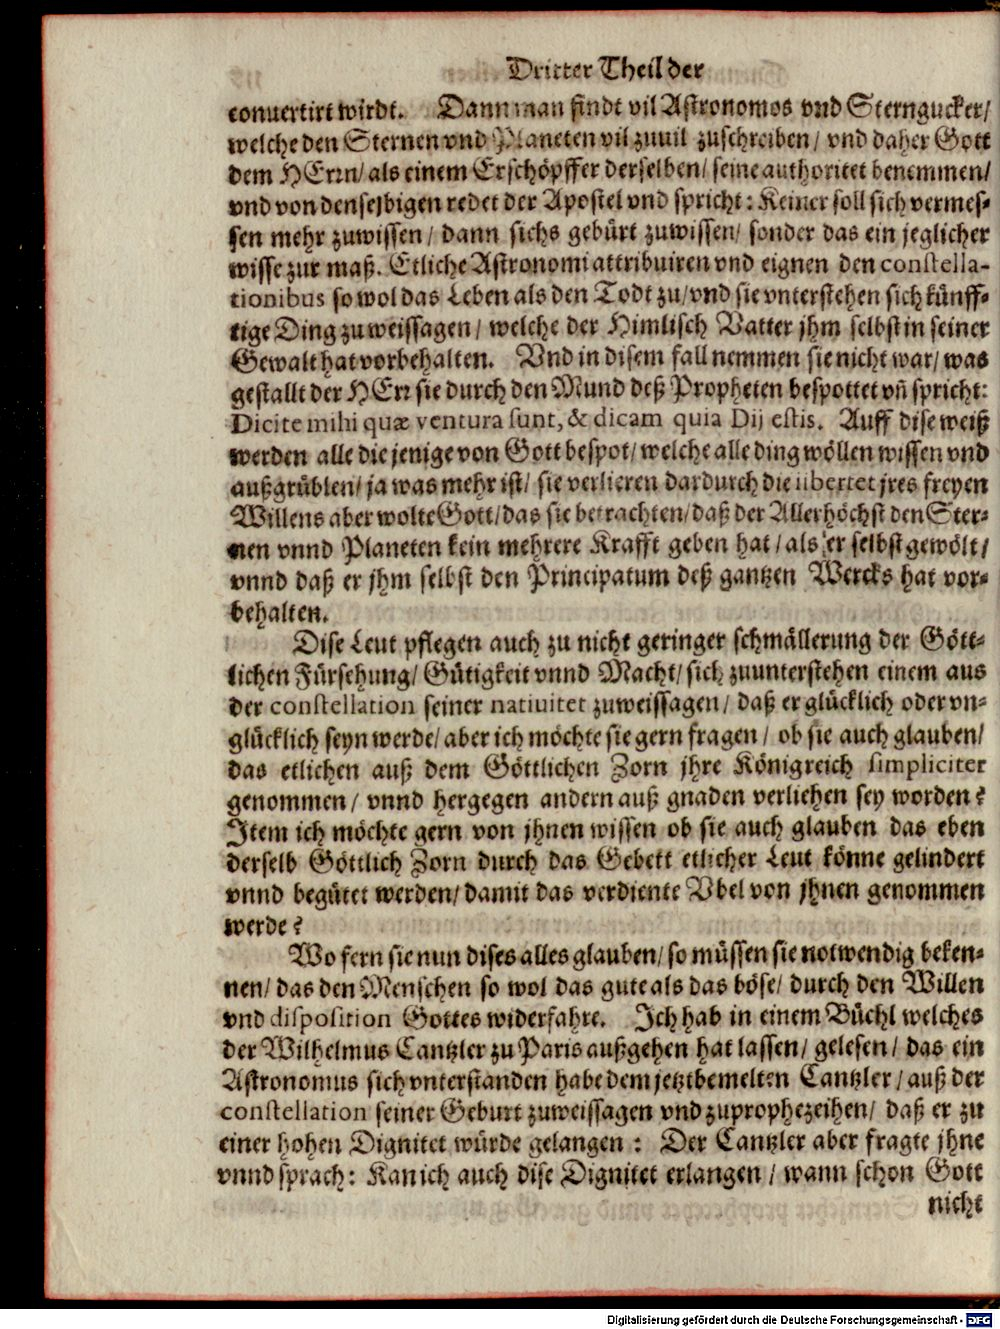 Dritter Theil der
conuertirt wirdt. Dann man findt vil Astronomos vnd Sterngucker/
welche den Sternen vnd Planeten vil zuuil zuschreiben/ vnd daher Gott
dem HErrn/ als einem Erschöpffer derselben/ seine authoritet benemmen/
vnd von denselbigen redet der Apostel vnd spricht: Keiner soll sich vermes-
sen mehr zuwissen/ dann sichs gebürt zuwissen/ sonder das ein jeglicher
wisse zur maß. Etliche Astronomi attribuiren vnd eignen den constella-
tionibus so wol das Leben als den Todt zu/ vnd sie vnterstehen sich künff-
tige Ding zu weissagen/ welche der Himlisch Vatter jhm selbst in seiner
Gewalt hat vorbehalten. Vnd in disem fall nemmen sie nicht war/ was
gestallt der HErr sie durch den Mund deß Propheten bespottet vñ spricht:
Dicite mihi quæ ventura sunt, & dicam quia Dij estis. Auff dise weiß
werden alle die jenige von Gott bespot/ welche alle ding wöllen wissen vnd
außgrüblen/ ja was mehr ist/ sie verlieren dardurch die libertet jres freyen
Willens aber wolte Gott/ das sie betrachten/ daß der Allerhöchst den Ster-
nen vnnd Planeten kein mehrere Krafft geben hat/ als er selbst gewölt/
vnnd daß er jhm selbst den Principatum deß gantzen Wercks hat vor-
behalten.
Dise Leut pflegen auch zu nicht geringer schmällerung der Gött-
lichen Fürsehung/ Gütigkeit vnnd Macht/ sich zuunterstehen einem aus
der constellation seiner natiuitet zuweissagen/ daß er glücklich oder vn-
glücklich seyn werde/ aber ich möchte sie gern fragen/ ob sie auch glauben/
das etlichen auß dem Göttlichen Zorn jhre Königreich simpliciter
genommen/ vnnd hergegen andern auß gnaden verliehen sey worden?
Item ich möchte gern von jhnen wissen ob sie auch glauben das eben
derselb Göttlich Zorn durch das Gebett etlicher Leut könne gelindert
vnnd begütet werden/ damit das verdiente Vbel von jhnen genommen
werde?
Wo fern sie nun dises alles glauben/ so müssen sie notwendig beken-
nen/ das den Menschen so wol das gute als das böse/ durch den Willen
vnd disposition Gottes widerfahre. Ich hab in einem Büchl welches
der Wilhelmus Cantzler zu Paris außgehen hat lassen/ gelesen/ das ein
Astronomus sich vnterstanden habe dem jetztbemelten Cantzler/ auß der
constellation seiner Geburt zuweissagen vnd zuprophezeihen/ daß er zu
einer hohen Dignitet würde gelangen: Der Cantzler aber fragte jhne
vnnd sprach: Kan ich auch dise Dignitet erlangen/ wann schon Gott
nicht
Digitalisierung gefördert durch die Deutsche Forschungsgemeinschaft - DFG